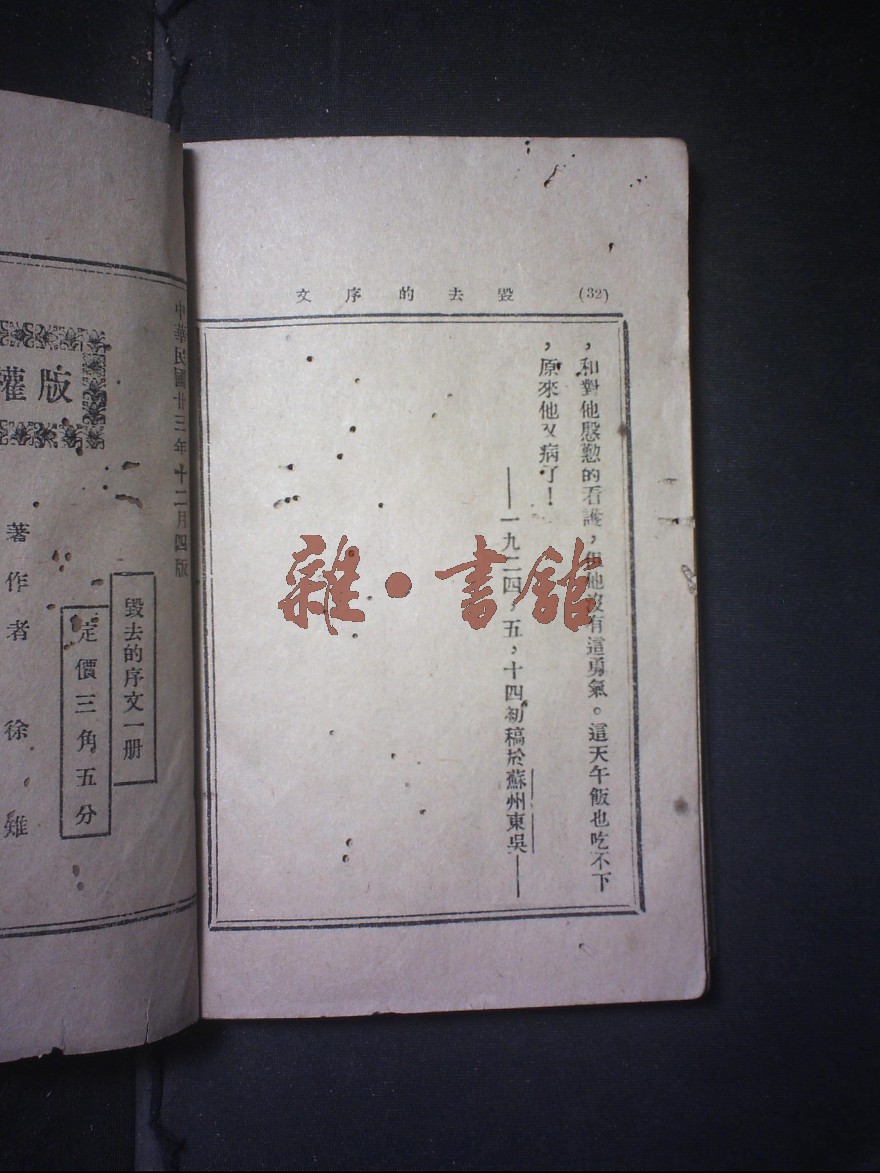 (32) 毀去的序文
，和對他慇懃的看護，但他沒有這勇氣。這天午飯也吃不下
，原來他又病了！
——一九二四，五，十四初稿於蘇州東吳——
中華民國廿三年十二月四版
毀去的序文一册
定價三角五分
版權
著作者 徐雉
雜·書館